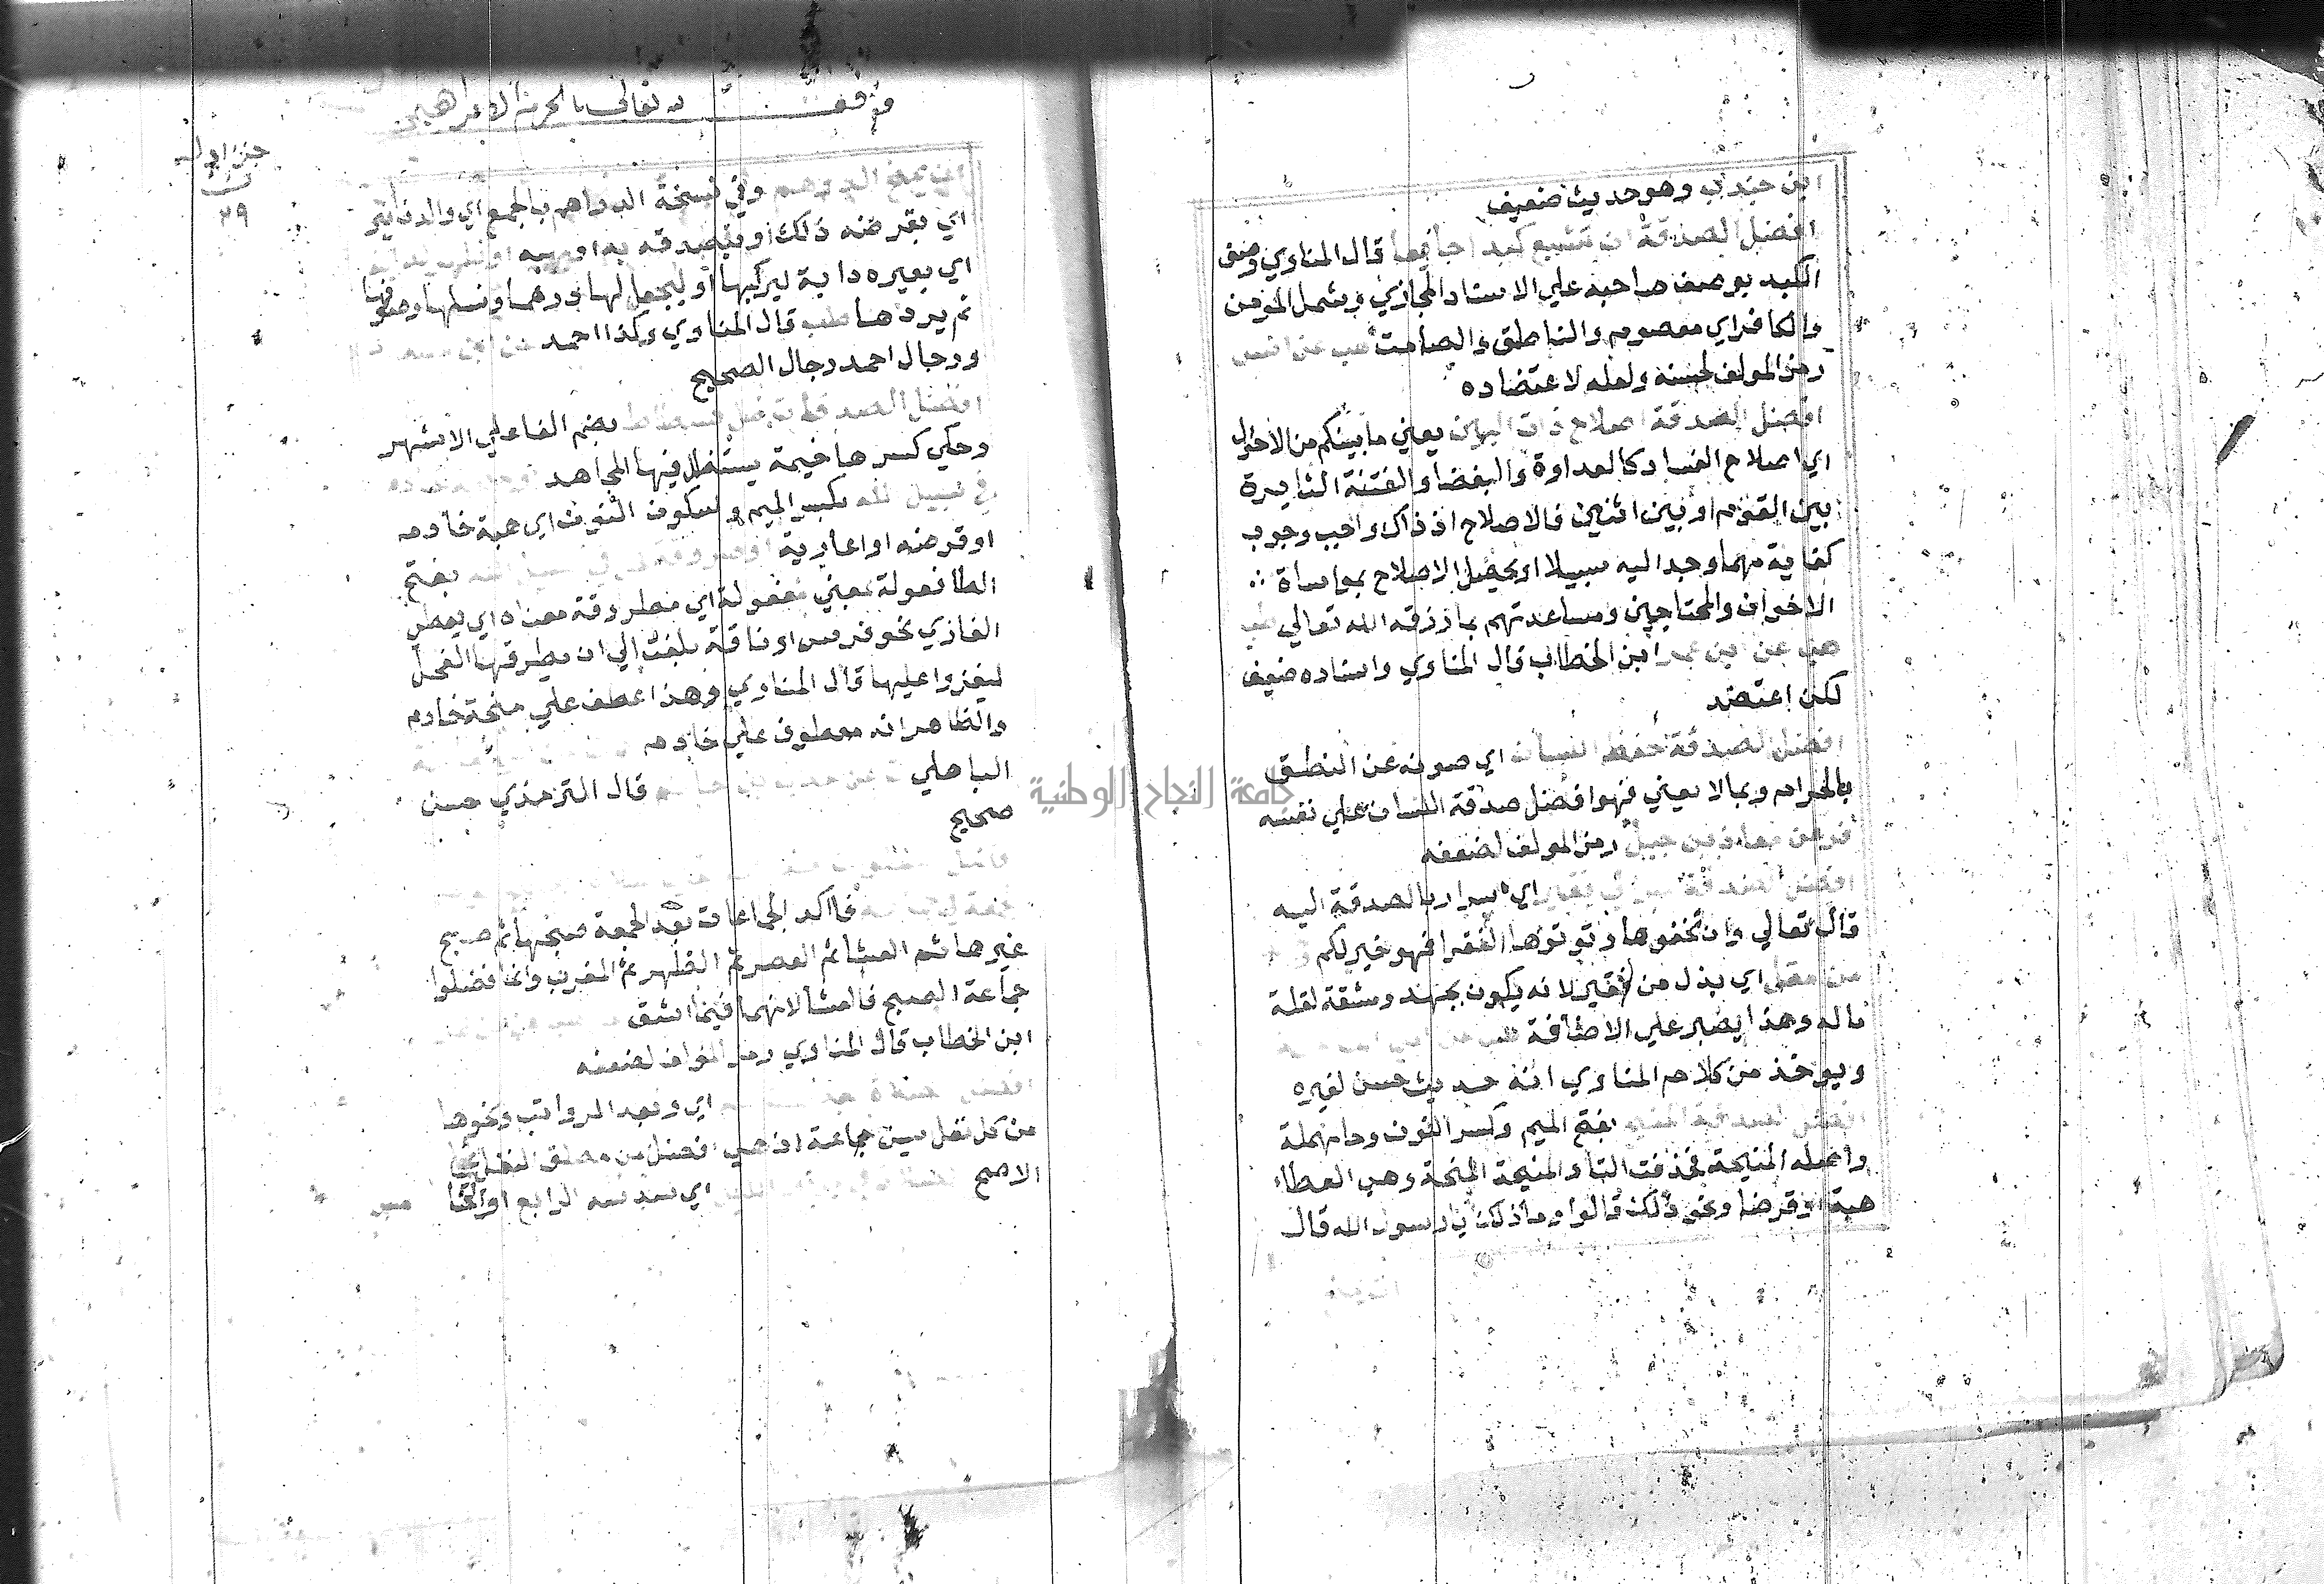 ابن جندب وهو حديث ضعيف
افضل الصدقة ان تشبع كبدا جايعا قال المناوي وصف
الكبد بوصف صاحبه علي الاسناد المجازي وشمل المومن
والكافر اي معصوم والناطق والصامت هب عن انس
رمز المولف لحسنه ولعله لاعتضاده
افضل الصدقة اصلاح ذات البين يعني ما بينكم من الاحوال
اي اصلاح الفساد كالعداوة والبغضا والفتنة الثايرة
بين القوم او بين اثنين فالاصلاح اذ ذاك واجب وجوب
كفاية مهما وجد اليه سبيلا او يحصل الاصلاح بمواساة
الاخوان والمحتاجين ومساعدتهم بما رزقه الله تعالي طب
هب عن ابن عمر ابن الخطاب قال المناوي واسناده ضعيف
لكن اعتضد
افضل الصدقة حفظ اللسان اي صونه عن النطق
بالحرام وبما لا يعني فهو افضل صدقة اللسان علي نفسه
فر عن معاذ بن جبل رمز المولف لضعفه
افضل الصدقة سر الي فقير اي اسرار بالصدقة اليه
قال تعالي وان تخفوها وتوتوها الفقرا فهو خير لكم
من مقل اي بذل من فقير لانه يكون بجهد ومشقة لقلة
ماله وهذا يصبر علي الاضافة طب عن ابي امامة
ويوخذ من كلام المناوي انه حديث حسن لغيره
افضل الصدقة المنيح بفتح الميم وكسر النون وحا مهملة
واصله المنيحة فحذفت التا والمنيحة المنحة وهي العطاء
هبة او قرضا ونحو ذلك قالوا وما ذلك يا رسول الله قال
وقف لله تعالي
جزء اول
٢٩
ان يمنح الدرهم وفي نسخة الدراهم بالجمع اي والدنانير
اي بقرضه ذلك او يتصدق به او يهبه او ظهر الدابة
اي يعيره دابة ليركبها او ليجعل لها درها ونسلها وصوفها
ثم يردها طب قال المناوي وكذا احمد عن ابن مسعود
ورجال احمد رجال الصحيح
افضل الصدقات ظل فسطاط بضم الفا علي الاشهر
وحكي كسرها خيمة يستظل فيها المجاهد
في سبيل الله بكسر الميم وسكون النون اي هبة خادم
او قرضه او اعارية او طروقة فحل في سبيل الله بفتح
الطا فعولة بمعني مفعولة اي مطروقة معناه اي يعطي
الغازي نحو فرس او ناقة بلغت الي ان يطرقها الفحل
ليغزوا عليها قال المناوي وهذا عطف علي منحة خادم
والظاهر انه معطوف علي خادم
الباهلي قال الترمذي حسن
صحيح
فاكد الجماعات بعد الجمعة صبحها ثم صبح
غيرها ثم العشا ثم العصر ثم الظهر ثم المغرب وانما فضلوا
جماعة الصبح فالعشا لانهما فيهما اشق
ابن الخطاب قال المناوي رمز المولف لضعفه
اي وبعد الرواتب ونحوها
من كل نفل يسن جماعة اذ هي افضل من مطلق النفل علي
الاصح اي سدسه الرابع والخامس
جامعة النجاح الوطنية